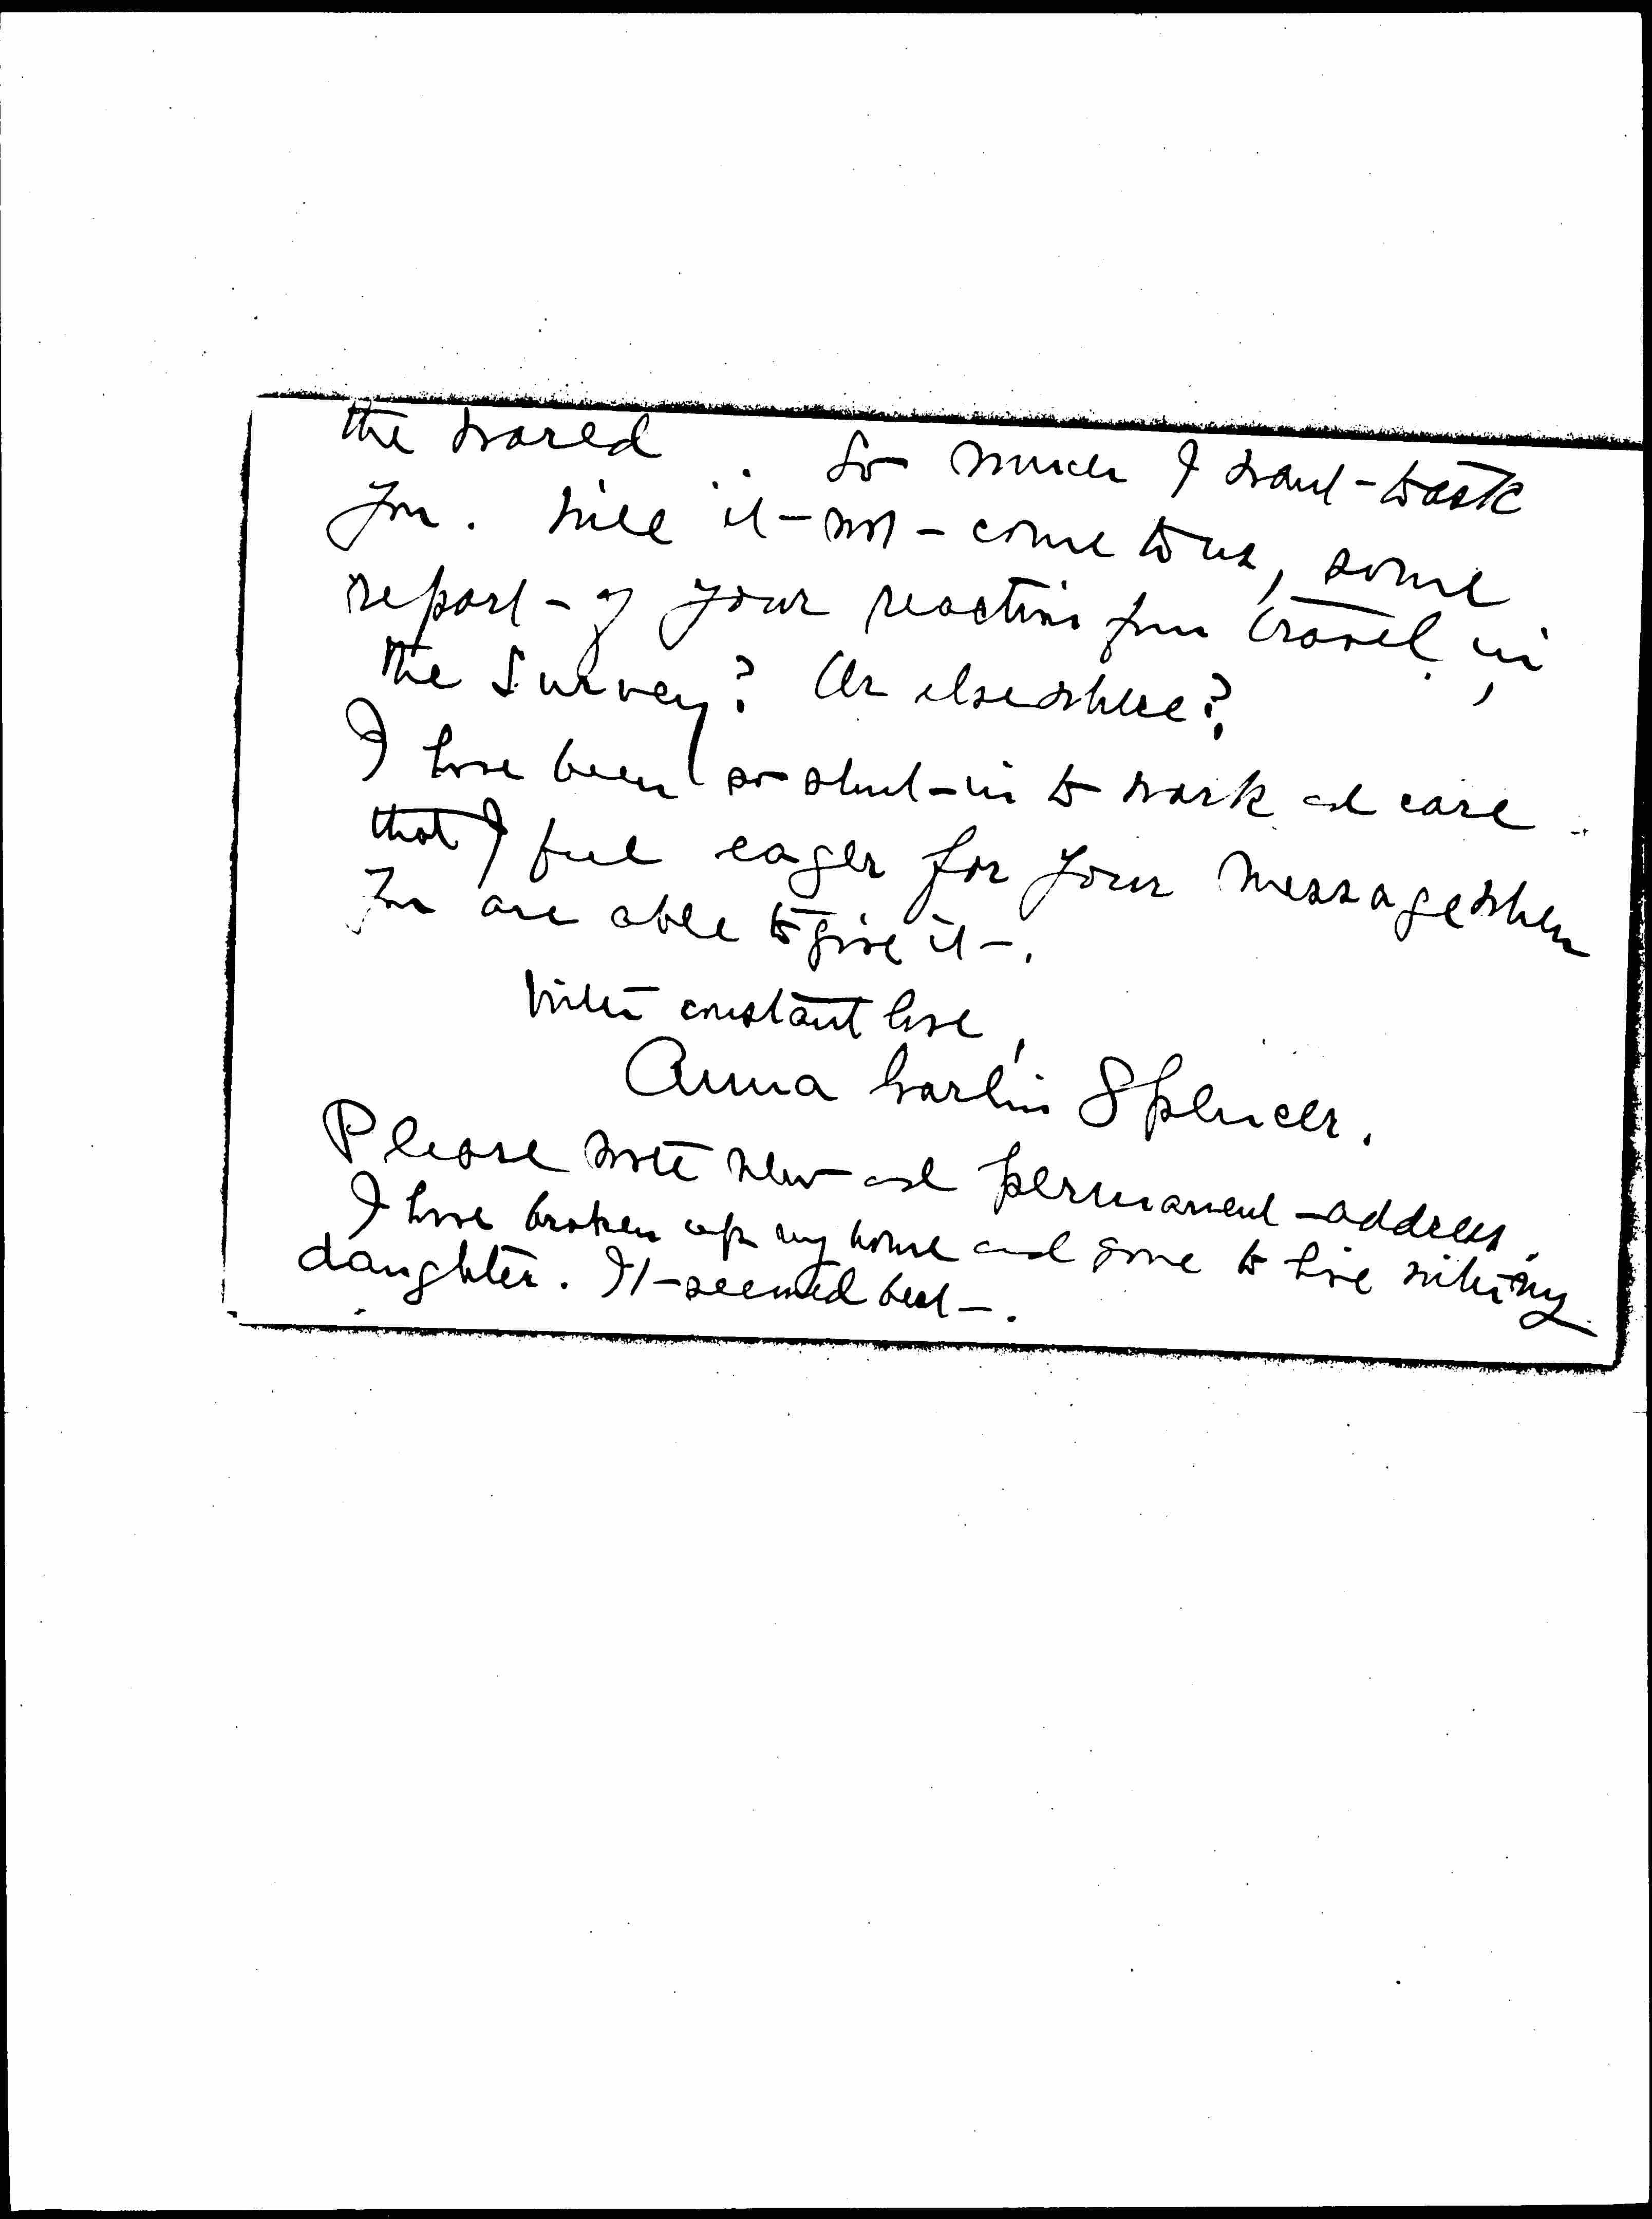 the world. So much I want to ask
you. Will it not come to us, some
report of your reactions from travel, in
the Survey? Or elsewhere?
I have been so shut-in to work and care
that I feel eager for your message when
you are able to give it.
With constant love,
Anna Garlin Spencer.
Please note new and permanent address.
I have broken up my home and gone to live with my
daughter. It seemed best.